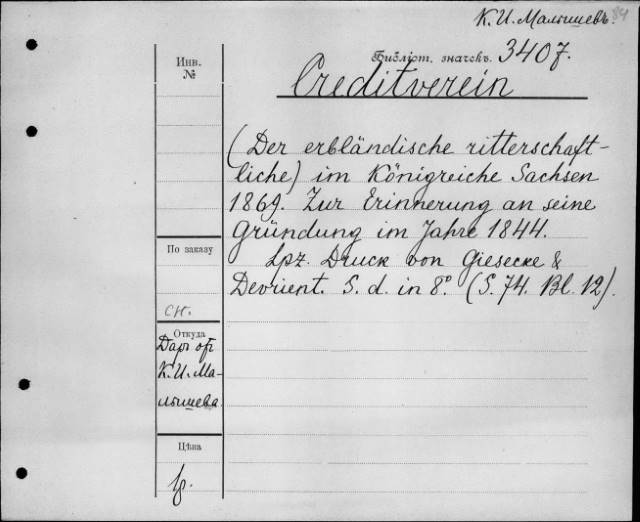 К. И. Малышевъ. 84
Инв.
№
Библіот. значекъ. 3407.
Creditverein
(Der erbländische ritterschaft-
liche) im Königreiche Sachsen
1869. Zur Erinnerung an seine
Gründung im Jahre 1844.
Lpz. Druck von Giesecke &
Devrient. S. d. in 8°. (S. 74. Bl. 12).
По заказу
сн.
Откуда
Даръ отъ
К. И. Ма-
лышева
Цѣна